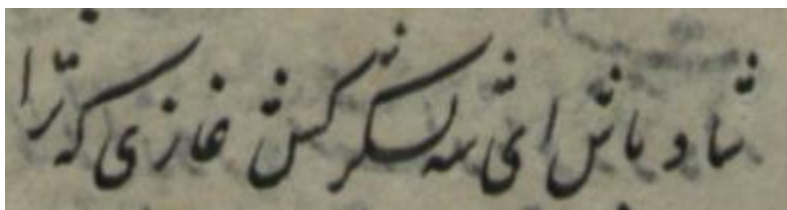 شاد باش ای شه لشکرکش غازی که ترا